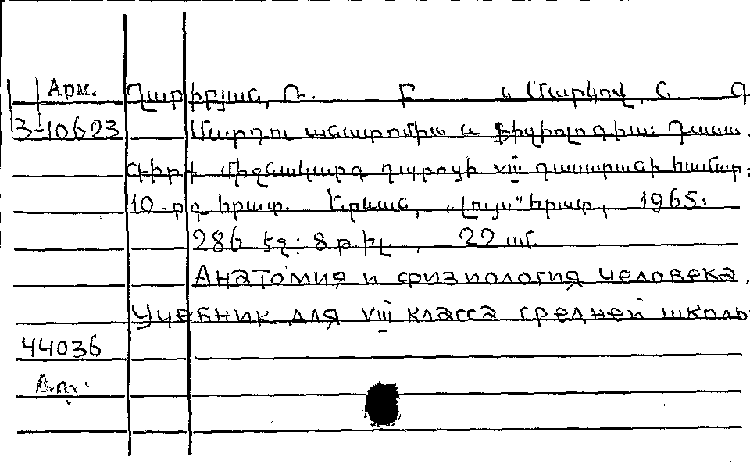 Арм. Ղարիբյան, Ռ. Բ և Մարկով, Ն. Գ
3-10623 Մարդու անատոմիա և ֆիզիոլոգիա: Դաս
գիրք միջնակարգ դպրոցի VIII դասարանի համար:
10-րդ հրատ. Երևան, „Լույս" հրատ, 1965:
286 էջ: 8 թ. իլ., 22 սմ.
Анатомия и физиология человека.
Учебник для VIII класса средней школы
44036